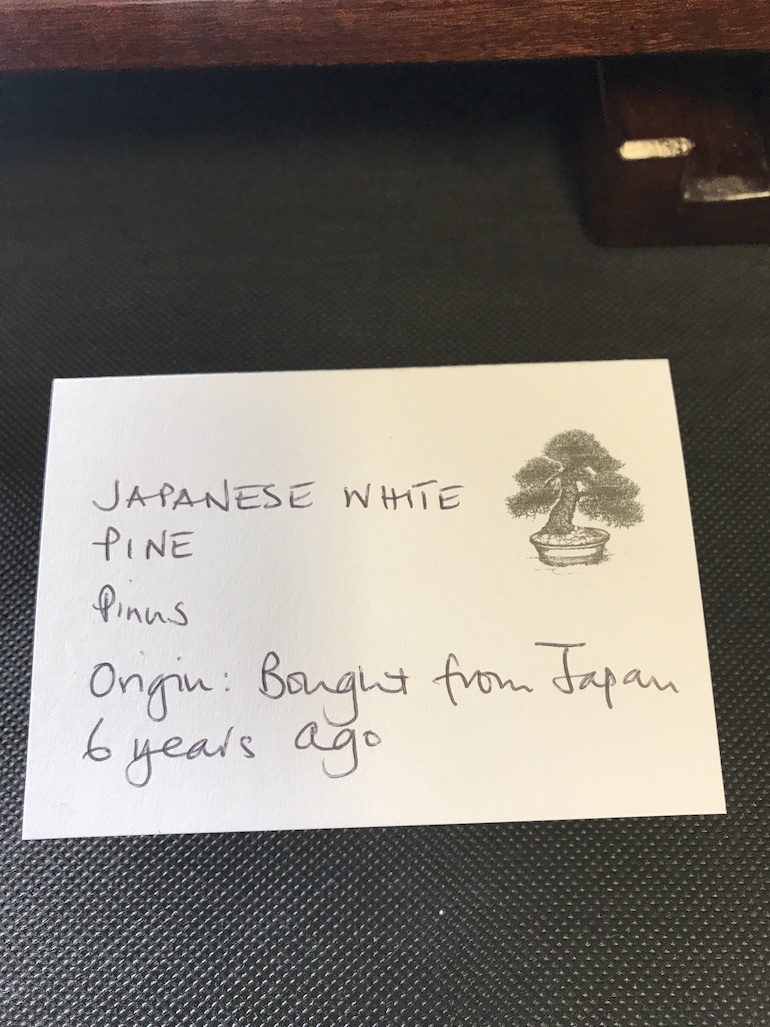 JAPANESE WHITE
PINE
Pinus
Origin: Bought from Japan
6 years ago